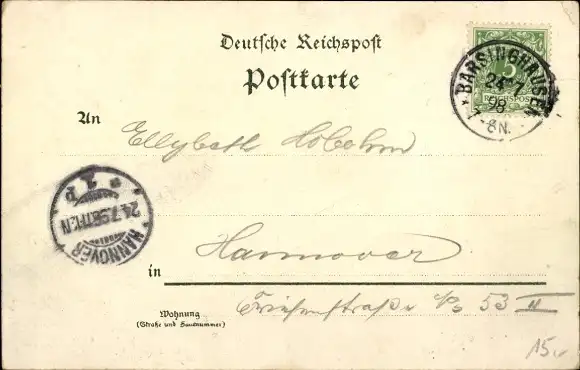 Deutsche Reichspost
Postkarte
5
REICHSPOST
BARSINGHAUSEN
24 7
98
8N.
An
Ellybeth Hobohm
* 1 b
24.7.98. 11-12N
HANNOVER
Hannover
in
Friesenstraße No 53 II
Wohnung
(Straße und Hausnummer)
15.-